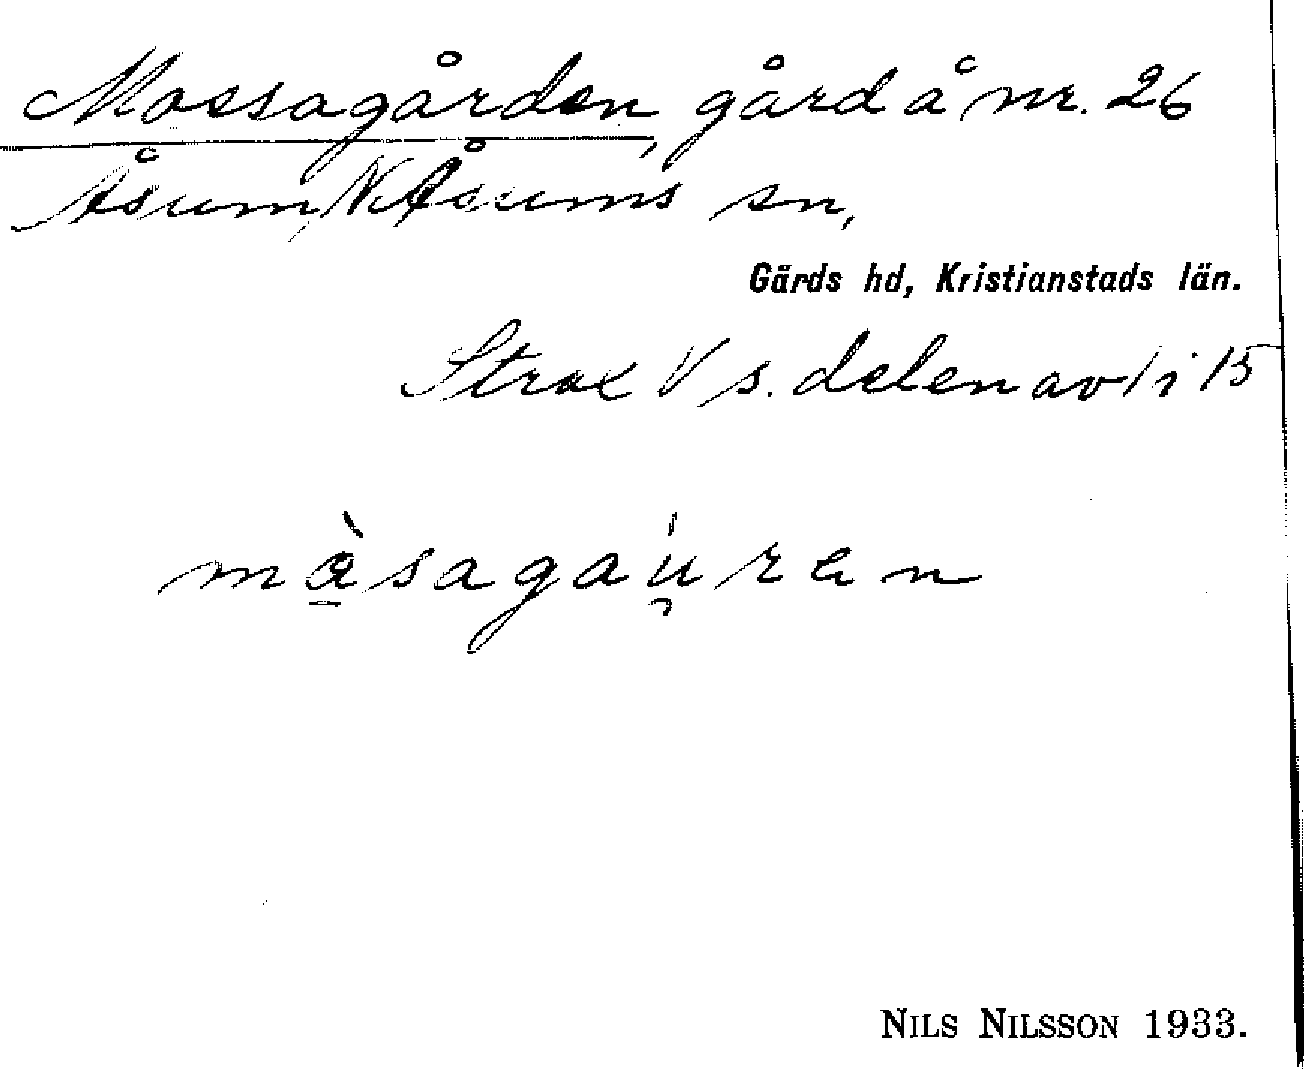 Mossagården, gård å nr. 26
Åsum, N Åsums sn,
Gärds hd, Kristianstads län.
Strax V s. delen av i 15
màsagau̯ren
NILS NILSSON 1933.